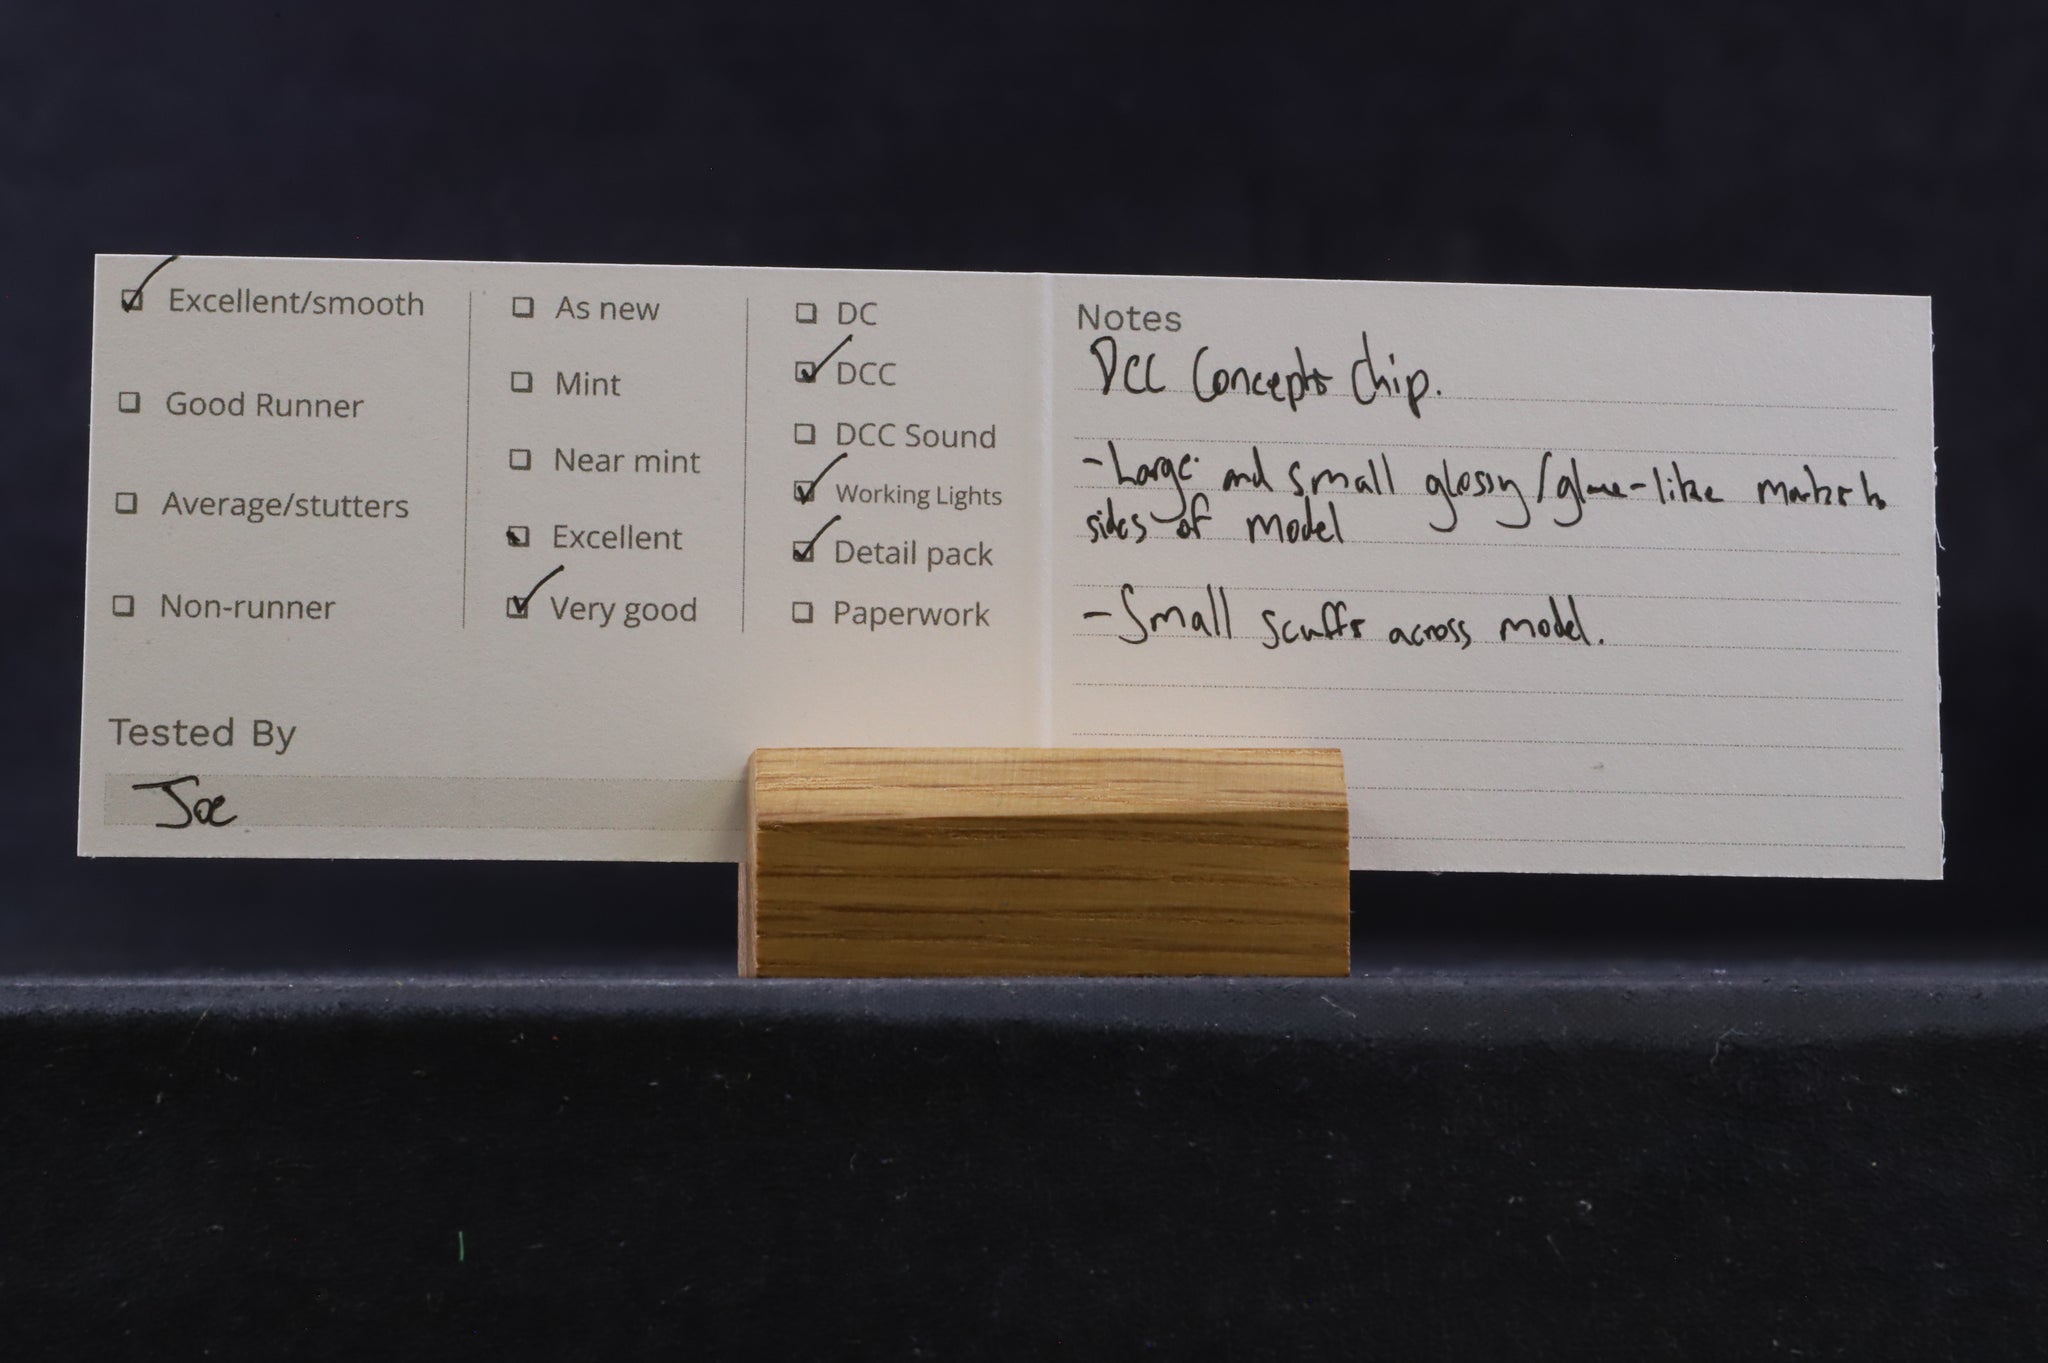 Excellent/smooth
Good Runner
Average/stutters
Non-runner
As new
Mint
Near mint
Excellent
Very good
DC
DCC
DCC Sound
Working Lights
Detail pack
Paperwork
Tested By
Joe
Notes
DCC Concepts Chip.
- Large and small glossy/glue-like marks to
sides of model
- Small scuffs across model.